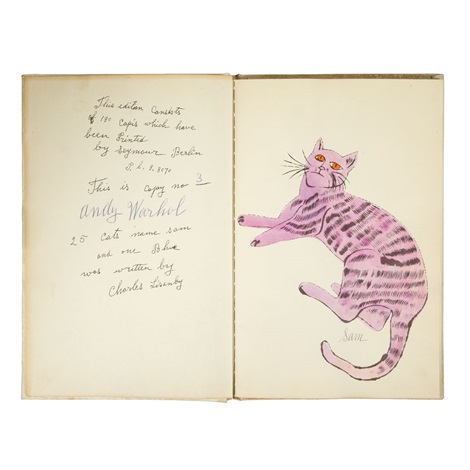 This edition consists
of 190 copis which have
been Printed
by Seymour Berlin
This is copy no 3
Andy Warhol
25 cats name sam
and one Blue
was written by
Charles Lisenby
Sam